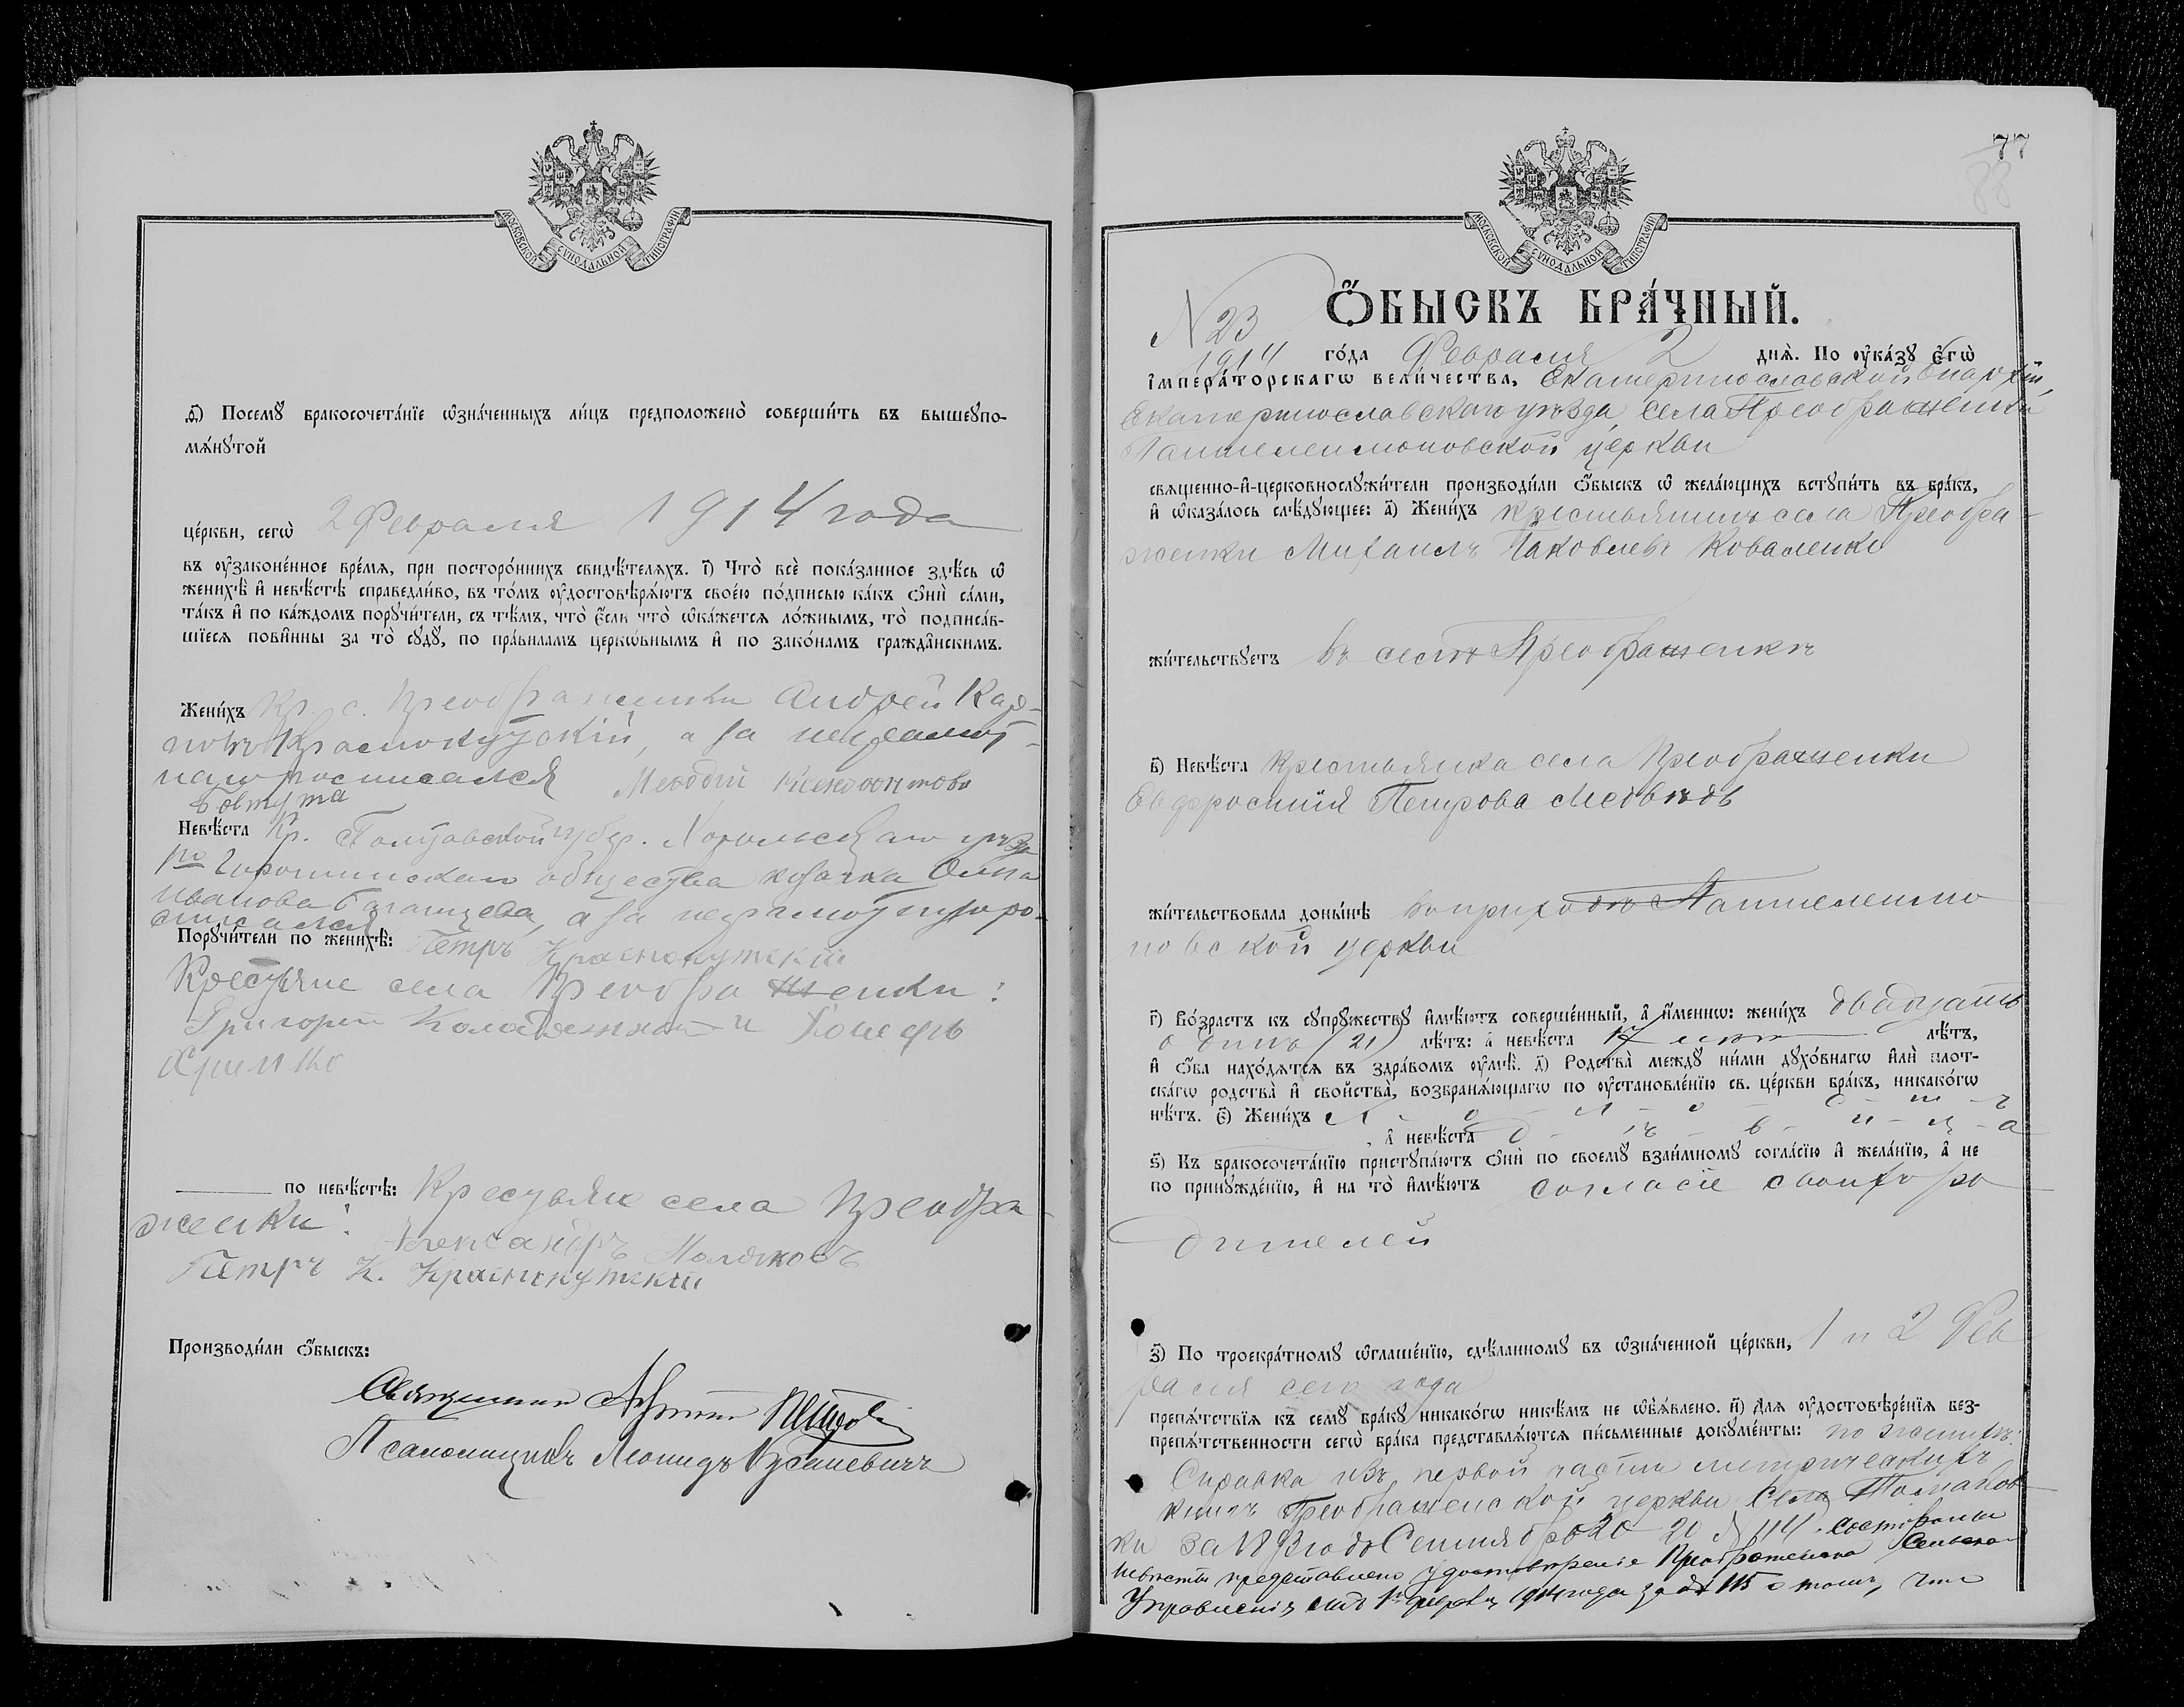 МОСКОВСКОЙ СѴНОДАЛЬНОЙ ТИПОГРАФІИ
ѳ҃) Посемꙋ̀ бракосочета́нїе ѡ҆зна́ченныхъ ли́цъ предположено̀ соверши́ть въ вышеꙋпо-
мѧ́нꙋтой
це́ркви, сегѡ̀ 2 Февраля 1914 года
въ ᲂу҆зако́не́нное вре́мѧ, при посторо́ннихъ свидѣ́телѧхъ. і҃) Что̀ всѐ пока́занное здѣ́сь ѡ҆
женихѣ̀ и҆ невѣ́стѣ справедли́во, въ то́мъ ᲂу҆достовѣрѧ́ютъ свое́ю по́дписью ка́къ ѻ҆нѝ са́ми,
та́къ и҆ по ка́ждомъ порꙋчи́тели, съ тѣ́мъ, что̀ є҆́сли что̀ ѡ҆ка́жетсѧ ло́жнымъ, то̀ подписа́в-
шїесѧ пови́нны за то̀ сꙋдꙋ̀, по пра́виламъ церкѡ́внымъ и҆ по зако́намъ гражда́нскимъ.
Жени́хъ Кр. с. Преображенки Андрей Кар-
повъ Краснокутскій, а за неграмот-
наго росписался Меѳодій
Бовтута
Невѣ́ста Кр. Полтавской губер. Хорольскаго уѣзда
1го общества козачка Анна
Иванова, а за неграмотную ро-
списался
Порꙋчи́тели по женихѣ̀: Петръ Краснокутскій
Крестьяне села Преображенки:
Григорій и
по невѣ́стѣ: Крестьяне села Преобра-
женки: Александръ Поляковъ
Петръ К. Краснокутскій
Производи́ли ѻ҆́быскъ:
Священникъ Петровъ
Псаломщикъ Леонидъ
77
МОСКОВСКОЙ СѴНОДАЛЬНОЙ ТИПОГРАФІИ
N 23
Ѻ҆́БЫСКЪ БРА́ЧНЫЙ.
1914 го́да Февраля 2 днѧ̀. По ᲂу҆ка́зꙋ є҆гѡ̀
і҆мпера́торскагѡ вели́чества, Екатеринославской Епархіи,
Екатеринославскаго уѣзда, села Преображенки
Пантелеимоновской церкви
свѧщенно-и҆-церковнослꙋжи́тели производи́ли ѻ҆́быскъ ѡ҆ жела́ющихъ встꙋпи́ть въ бра́къ,
и҆ ѡ҆каза́лось слѣ́дꙋющее: а҃) Жени́хъ крестьянинъ села Преобра-
женки Михаилъ Іаковлевъ Коваленко
жи́тельствꙋетъ въ селѣ Преображенкѣ
в҃) Невѣ́ста крестьянка села Преображенки
Евфросинія Петрова Медвѣдь
жи́тельствовала доны́нѣ въ приходѣ Пантелеимо
новской церкви
г҃) Во́зрастъ къ сꙋпрꙋ́жествꙋ и҆мѣ́ютъ соверше́нный, и҆ и҆́меннѡ: жени́хъ двадцать
одинъ (21) лѣ́тъ: а҆ невѣ́ста 17 лѣ́тъ,
и҆ ѻ҆́ба нахо́дѧтсѧ въ здра́вомъ ᲂу҆мѣ̀. д҃) Родства̀ междꙋ̀ ни́ми дꙋхо́внагѡ и҆лѝ плот-
ска́гѡ родства̀ и҆ свойства̀, возбранѧ́ющагѡ по ᲂу҆становле́нїю св. це́ркви бра́къ, никако́гѡ
нѣ́тъ. є҃) Жени́хъ х-о-л-о-с-т-ъ
, а҆ невѣ́ста д-ѣ-в-и-ц-а
ѕ҃) Къ бракосочета́нїю пристꙋпа́ютъ ѻ҆нѝ по своемꙋ̀ взаи́мномꙋ согла́сїю и҆ жела́нїю, а҆ не
по принꙋжде́нїю, и҆ на то̀ и҆мѣ́ютъ согласіе своихъ ро
дителей
з҃) По троекра́тномꙋ ѡ҆глаше́нїю, сдѣ́ланномꙋ въ ѡ҆зна́ченной це́ркви, 1 и 2 Фев
раля сего года
препѧ́тствїѧ къ семꙋ̀ бра́кꙋ никако́гѡ никѣ́мъ не ѡ҆б̾ѧ́влено. и҃) Длѧ ᲂу҆достовѣре́нїѧ без-
препѧ́тственности сегѡ̀ бра́ка представлѧ́ютсѧ пи́сьменные докꙋме́нты: по женихѣ:
Справка изъ первой части метрическихъ
книгъ Преображенской церкви села Томаков
ки за 18 годъ Сентября 20 N 114. Со стороны
невѣсты представлено удостовѣреніе Преображенскаго Сельскаго
Управленія отъ 1го февр. 1914 года за № 115 о томъ, что